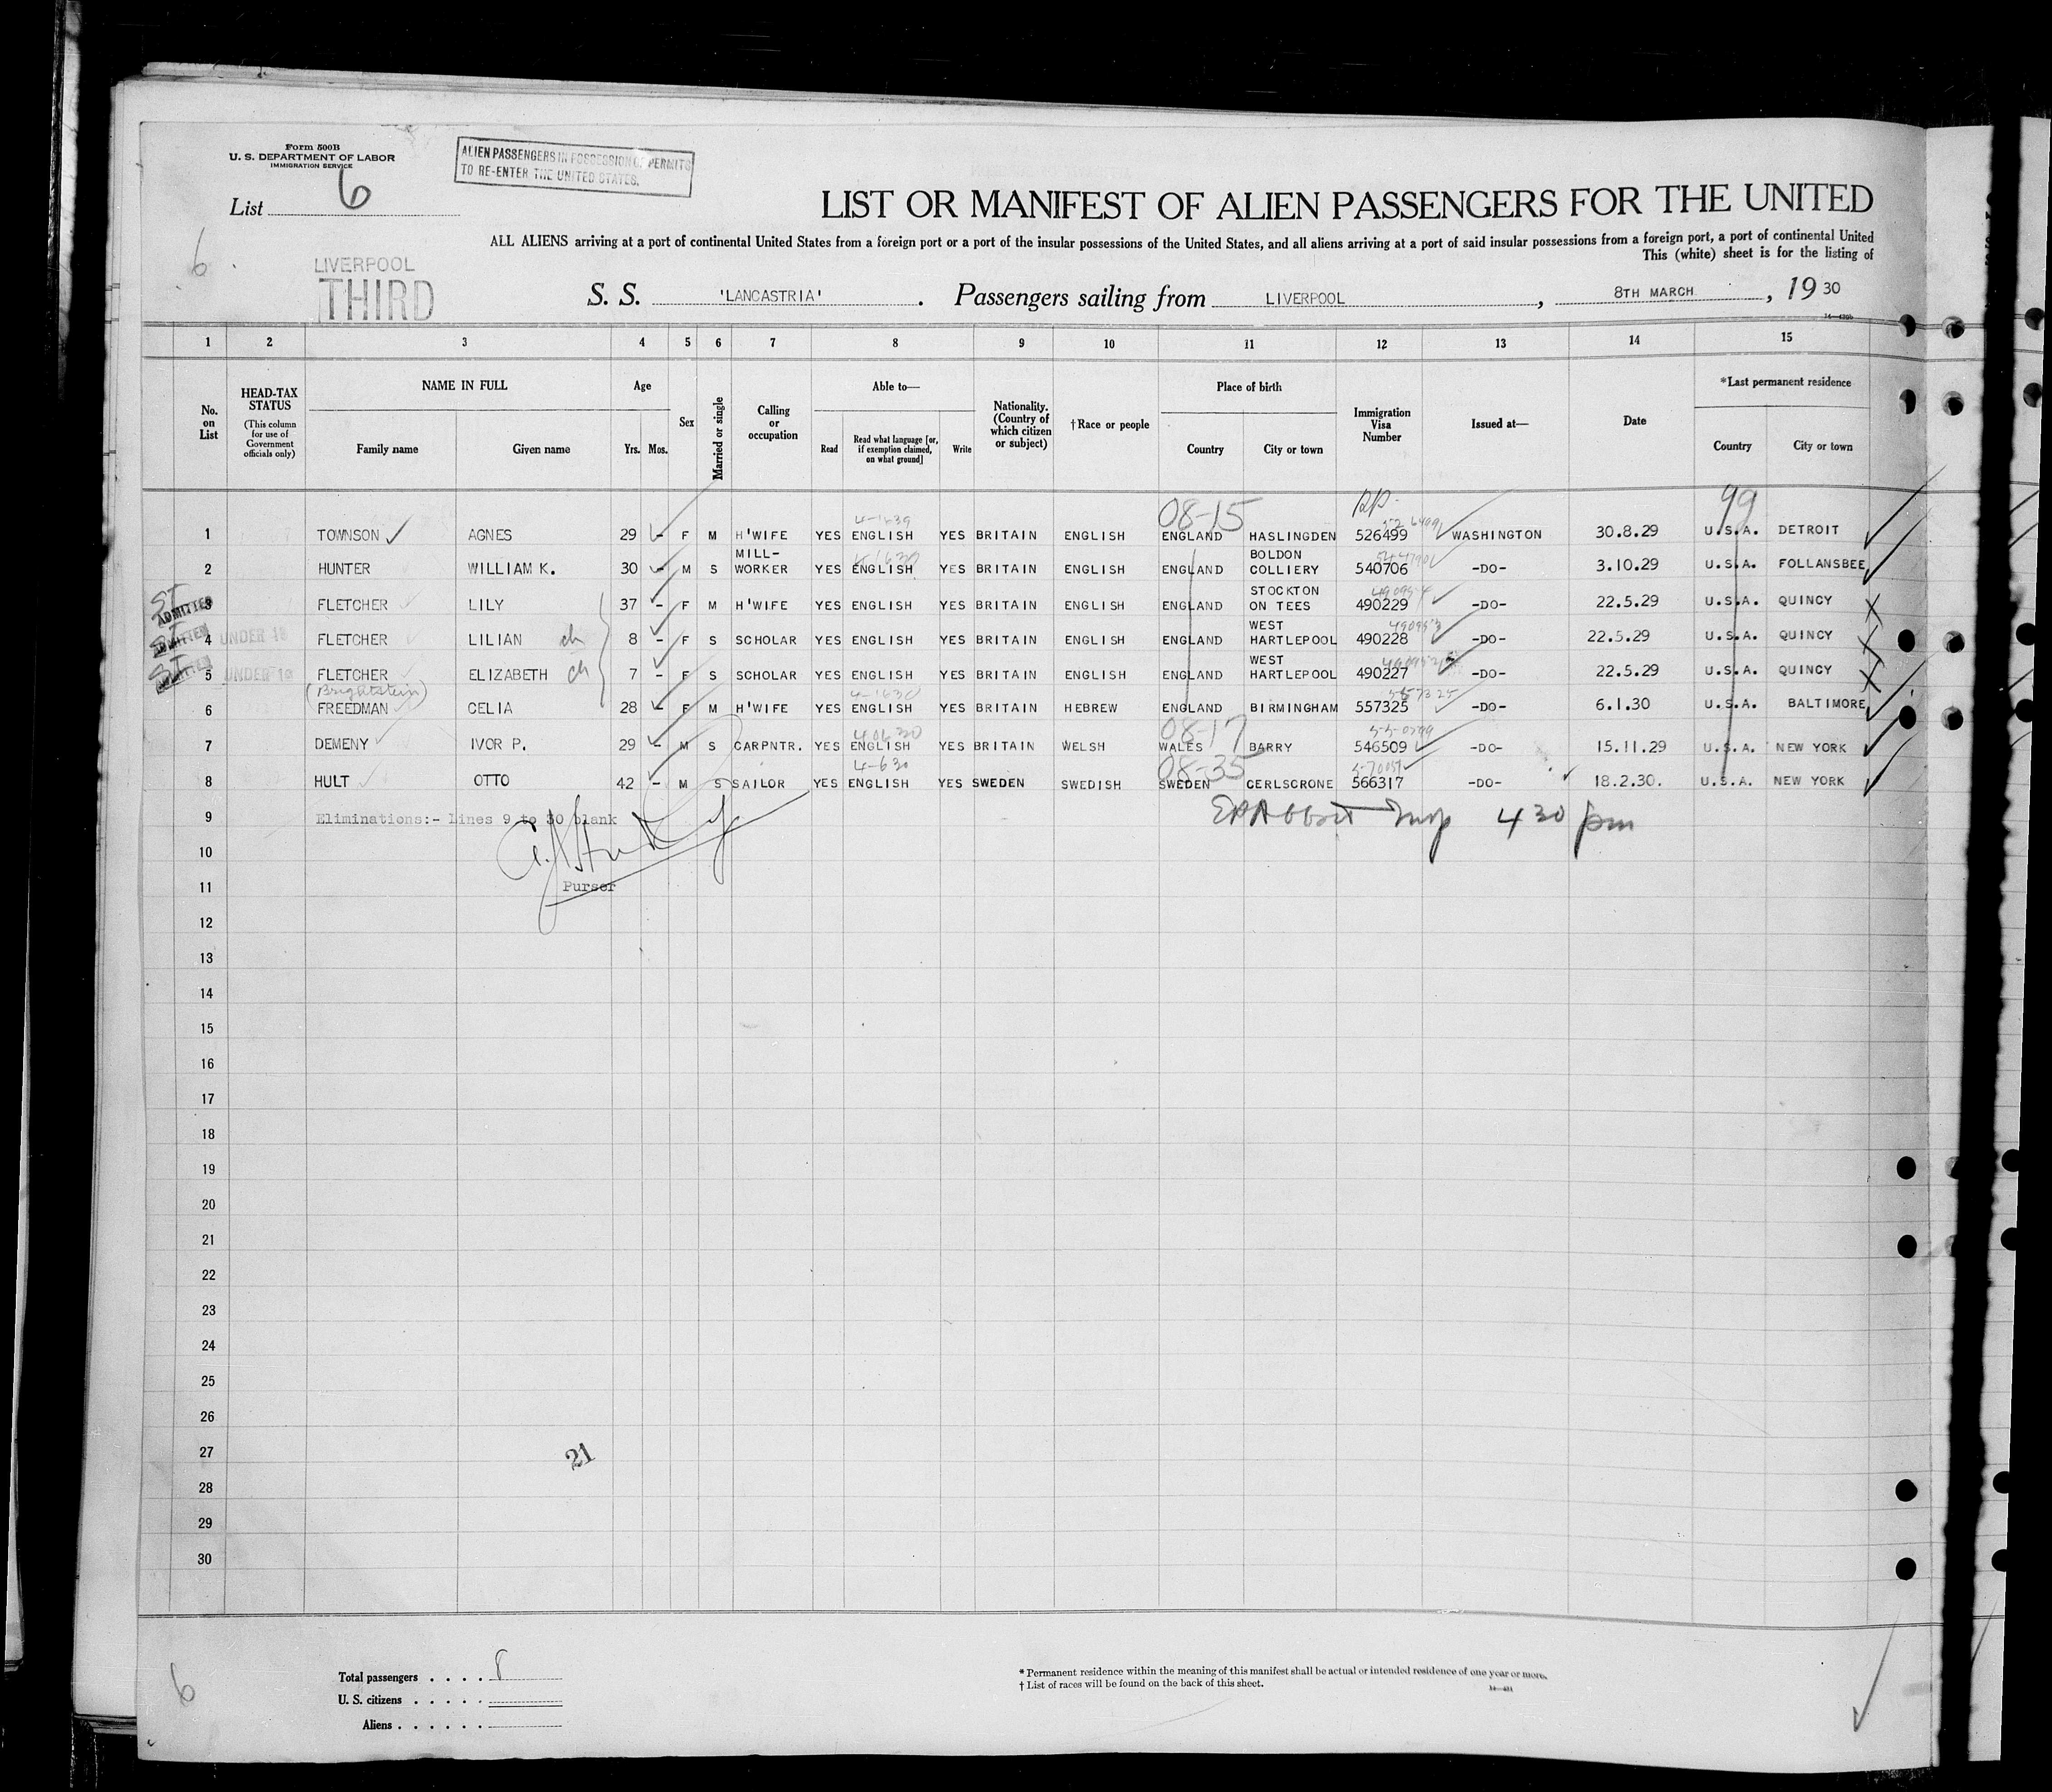 Form 500B
U. S. DEPARTMENT OF LABOR
IMMIGRATION SERVICE
ALIEN PASSENGERS IN POSSESSION OF PERMITS
TO RE-ENTER THE UNITED STATES.
List 6
LIST OR MANIFEST OF ALIEN PASSENGERS FOR THE UNITED
ALL ALIENS arriving at a port of continental United States from a foreign port or a port of the insular possessions of the United States, and all aliens arriving at a port of said insular possessions from a foreign port, a port of continental United
This (white) sheet is for the listing of
6
LIVERPOOL
THIRD
S. S. 'LANCASTRIA'. Passengers sailing from LIVERPOOL, 8TH MARCH, 1930
1 2 3 4 5 6 7 8 9 10 11 12 13 14 15
No. on List
HEAD-TAX STATUS (This column for use of Government officials only)
NAME IN FULL Family name Given name
Age Yrs. Mos.
Sex
Married or single
Calling or occupation
Able to— Read Read what language [or, if exemption claimed, on what ground] Write
Nationality. (Country of which citizen or subject)
†Race or people
Place of birth Country City or town
Immigration Visa Number
Issued at—
Date
*Last permanent residence Country City or town
08-15 99
1 TOWNSON AGNES 29 - F M H'WIFE YES ENGLISH YES BRITAIN ENGLISH ENGLAND HASLINGDEN 526499 WASHINGTON 30.8.29 U.S.A. DETROIT
2 HUNTER WILLIAM K. 30 - M S MILL-WORKER YES ENGLISH YES BRITAIN ENGLISH ENGLAND BOLDON COLLIERY 540706 -DO- 3.10.29 U.S.A. FOLLANSBEE
ADMITTED 3 FLETCHER LILY 37 - F M H'WIFE YES ENGLISH YES BRITAIN ENGLISH ENGLAND STOCKTON ON TEES 490229 -DO- 22.5.29 U.S.A. QUINCY
ADMITTED 4 UNDER 16 FLETCHER LILIAN ch 8 - F S SCHOLAR YES ENGLISH YES BRITAIN ENGLISH ENGLAND WEST HARTLEPOOL 490228 -DO- 22.5.29 U.S.A. QUINCY
ADMITTED 5 UNDER 16 FLETCHER ELIZABETH ch 7 - F S SCHOLAR YES ENGLISH YES BRITAIN ENGLISH ENGLAND WEST HARTLEPOOL 490227 -DO- 22.5.29 U.S.A. QUINCY
(Brightstein)
6 FREEDMAN CELIA 28 - F M H'WIFE YES ENGLISH YES BRITAIN HEBREW ENGLAND BIRMINGHAM 557325 -DO- 6.1.30 U.S.A. BALTIMORE
08-17
7 DEMENY IVOR P. 29 - M S CARPNTR. YES ENGLISH YES BRITAIN WELSH WALES BARRY 546509 -DO- 15.11.29 U.S.A. NEW YORK
08-35
8 HULT OTTO 42 - M S SAILOR YES ENGLISH YES SWEDEN SWEDISH SWEDEN CERLSCRONE 566317 -DO- 18.2.30. U.S.A. NEW YORK
9 Eliminations:- Lines 9 to 30 blank
4 30 pm
10
11 Purser
12
13
14
15
16
17
18
19
20
21
22
23
24
25
26
27
21
28
29
30
6
Total passengers . . . . 8
U. S. citizens . . . . .
Aliens . . . . . .
* Permanent residence within the meaning of this manifest shall be actual or intended residence of one year or more.
† List of races will be found on the back of this sheet.